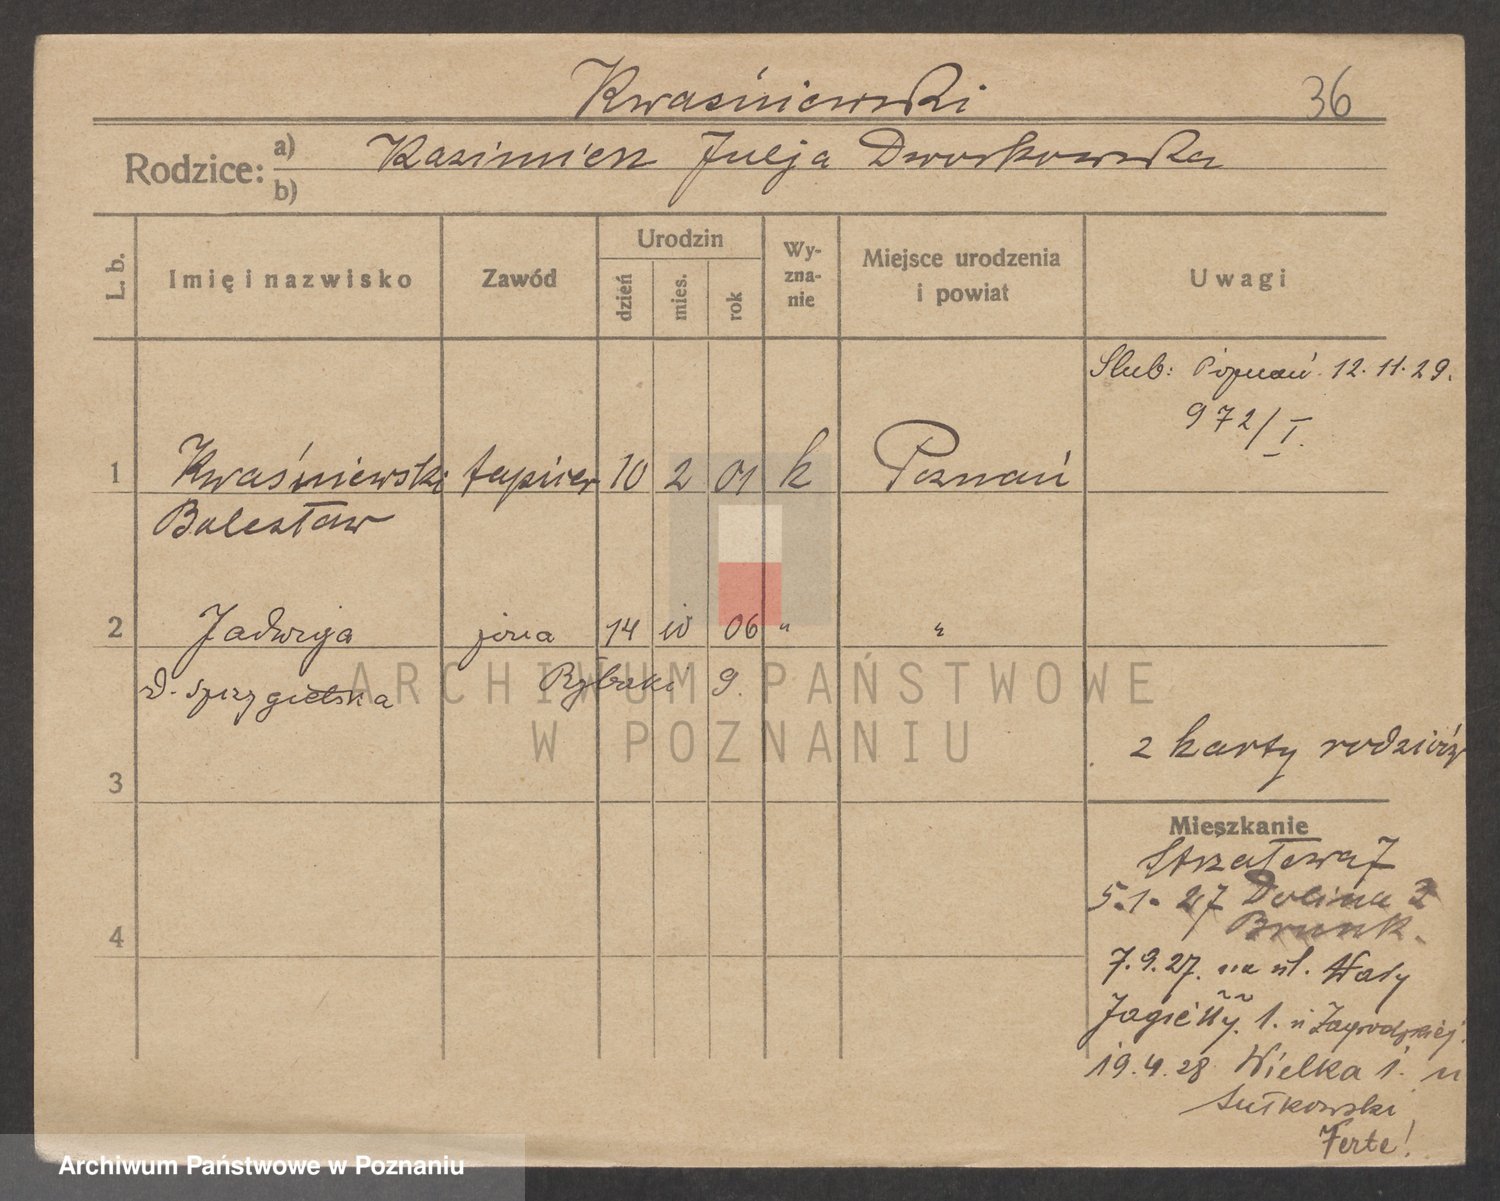 Kwaśniewski 36
Rodzice: a) Kazimierz Julja Dworkowska
b)
L. b. Imię i nazwisko Zawód Urodzin dzień mies. rok Wy-zna-nie Miejsce urodzenia i powiat Uwagi
Slub: Poznań 12.11.29.
972/I.
1 Kwaśniewski tapicer 10 2 01 k Poznań
Bolesław
2 Jadwiga żona 14 10 06 " "
d. Szczygielska Rybaki 9.
z karty rodziców
3
Mieszkanie
Strzałowa 7
5.1.27 Dolina 2
Brunk.
4
7.9.27. na ul. Wały
Jagiełły 1. u Zagrodzkiej
19.4.28 Wielka 1. u
Sułkowski
Ferte!
ARCHIWUM PAŃSTWOWE
W POZNANIU
Archiwum Państwowe w Poznaniu